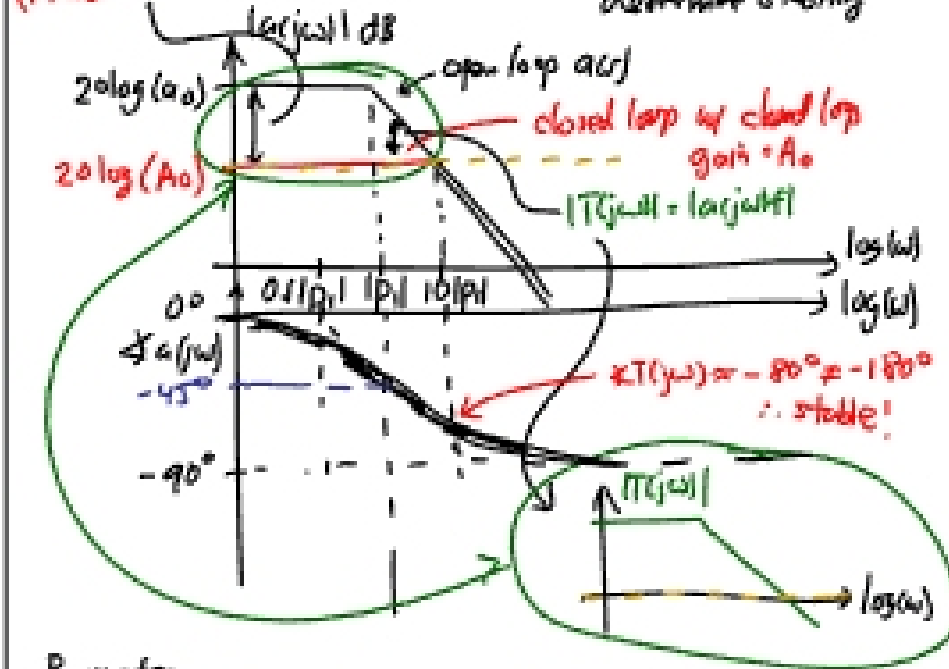 |a(jω)| dB
20log(a₀)
open loop a(s)
closed loop w/ closed loop
gain = A₀
20log(A₀)
|T(jω)| = |a(jω)f|
log(ω)
0° 0.1|p₁| |p₁| 10|p₁|
log(ω)
∡a(jω)
-45°
∡T(jω) ≈ -80° ≠ -180°
∴ stable!
-90°
|T(jω)|
log(ω)